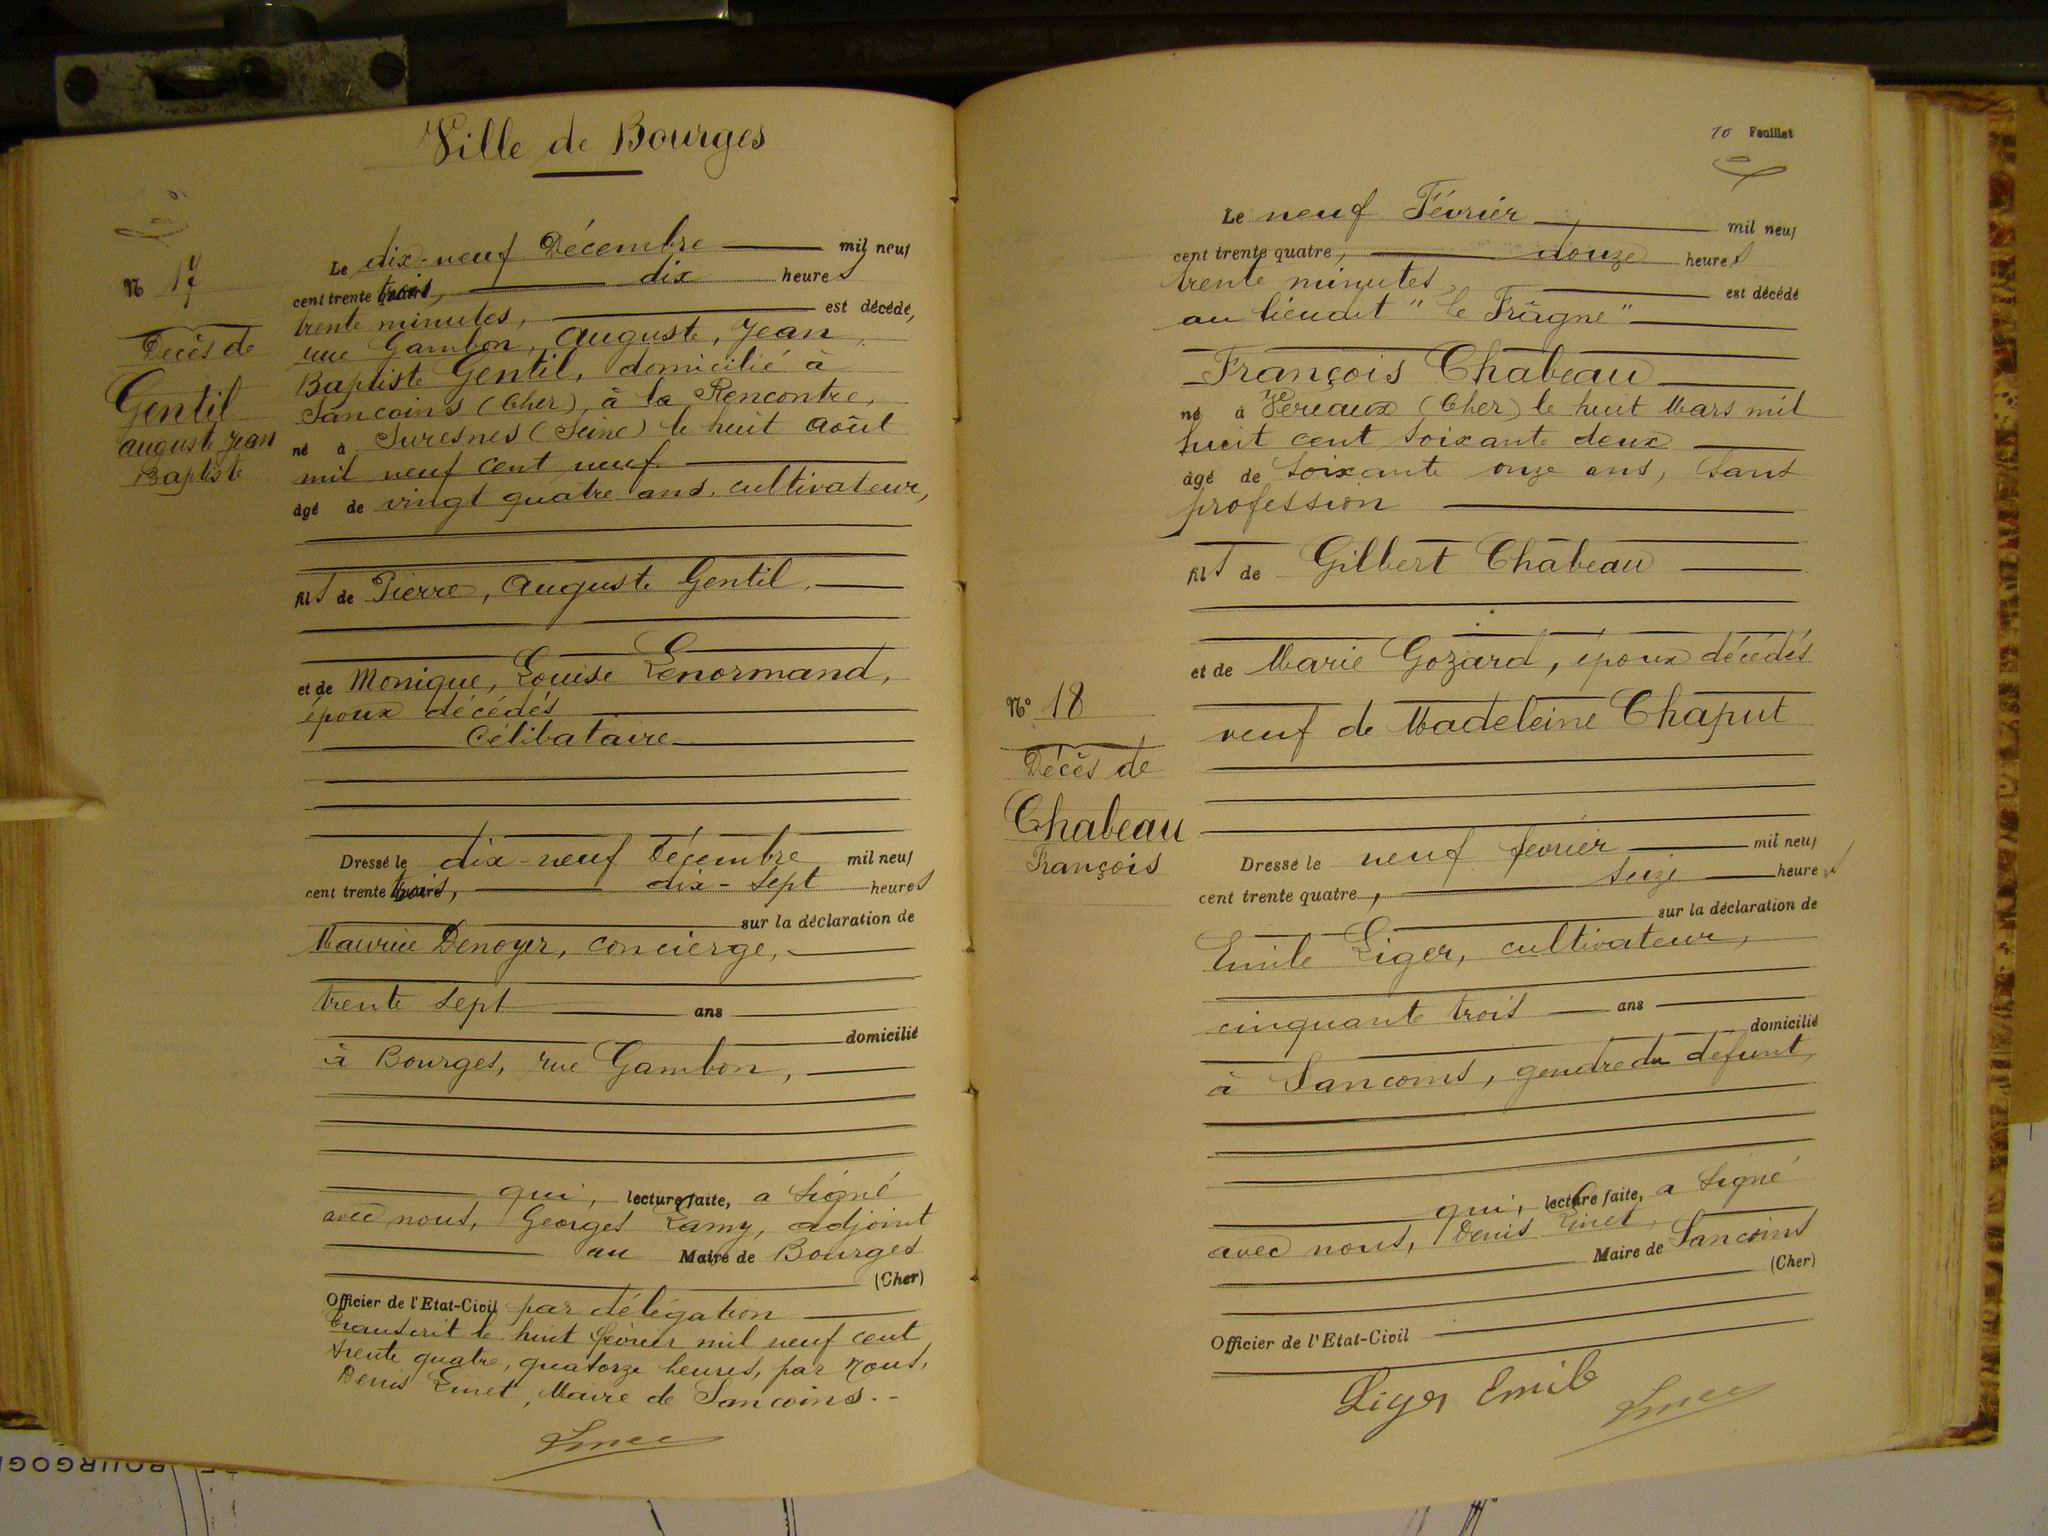 Ville de Bourges
N 17
Décès de
Gentil
auguste jean
Baptiste
Le dix-neuf Décembre mil neuf
cent trente trois, dix heures
trente minutes, est décédé,
rue Gambon, Auguste, Jean
Baptiste Gentil, domicilié à
Sancoins (Cher), à la Rencontre,
né à Suresnes (Seine) le huit Août
mil neuf cent neuf
âgé de vingt quatre ans, cultivateur,
fils de Pierre, Auguste Gentil,
et de Monique, Louise Lenormand,
époux décédés
Célibataire
Dressé le dix-neuf Décembre mil neuf
cent trente trois, dix-sept heures
sur la déclaration de
Maurice Denoyer, concierge,
trente sept ans
domicilié
à Bourges, rue Gambon,
qui, lecture faite, a signé
avec nous, Georges Lamy, adjoint
au Maire de Bourges
(Cher)
Officier de l'Etat-Civil par délégation
Transcrit le huit février mil neuf cent
trente quatre, quatorze heures, par Nous,
Denis Linet, Maire de Sancoins.-
10 Feuillet
Le neuf Février mil neuf
cent trente quatre, douze heures
trente minutes, est décédé
au lieudit "le Fragne"
François Chabeau
né à Vereaux (Cher) le huit Mars mil
huit cent soixante deux
âgé de soixante onze ans, sans
profession
fils de Gilbert Chabeau
et de Marie Gozard, époux décédés
veuf de Madeleine Chaput
N° 18
Décès de
Chabeau
François
Dressé le neuf février mil neuf
cent trente quatre, seize heures
sur la déclaration de
Emile Liger, cultivateur,
cinquante trois ans
domicilié
à Sancoins, gendre du defunt,
qui, lecture faite, a signé
avec nous, Denis Linet,
Maire de Sancoins
(Cher)
Officier de l'Etat-Civil
Liger Emile